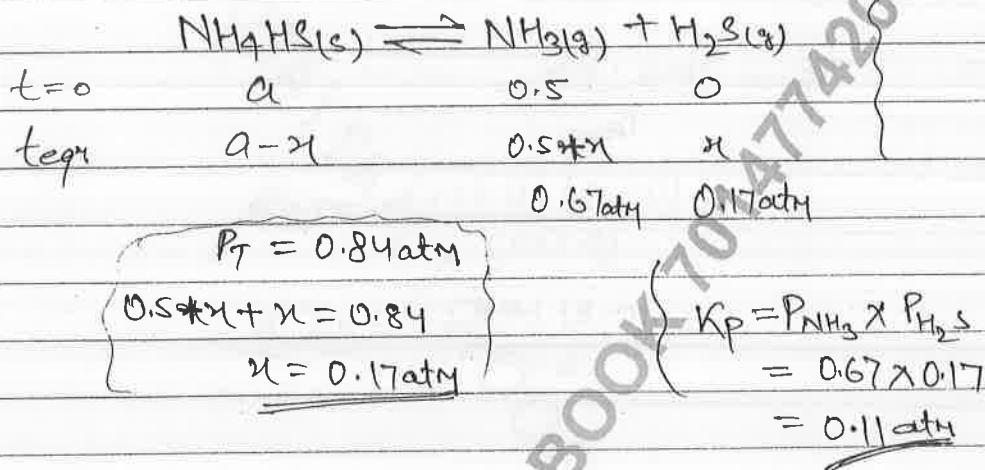 NH4HS(s) ⇌ NH3(g) + H2S(g)
t=0 a 0.5 0
teqr a-x 0.5+x x
0.67atm 0.17atm
PT = 0.84atm
0.5+x+x = 0.84
x = 0.17atm
Kp = PNH3 × PH2S
= 0.67×0.17
= 0.11 atm
BOOK 7014777426